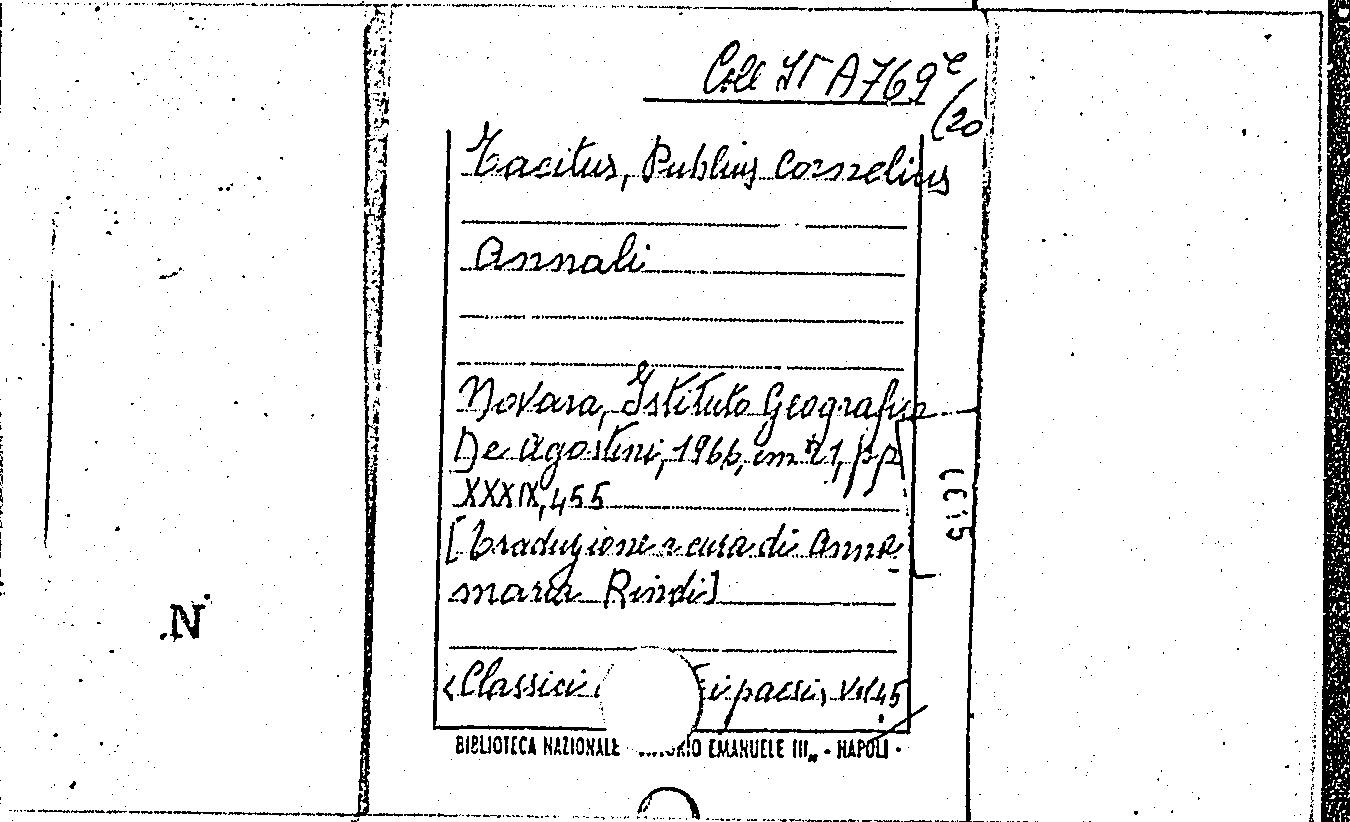 Coll It A 769 e
(20
Tacitus, Publius Cornelius
Annali
Novara, Istituto Geografico
De Agostini, 1966, cm 21, pp
XXXIX, 455
[traduzione a cura di Anna
maria Rindi]
«Classici i paesi, Vol 45
BIBLIOTECA NAZIONALE EMANUELE III„ - NAPOLI -
.N